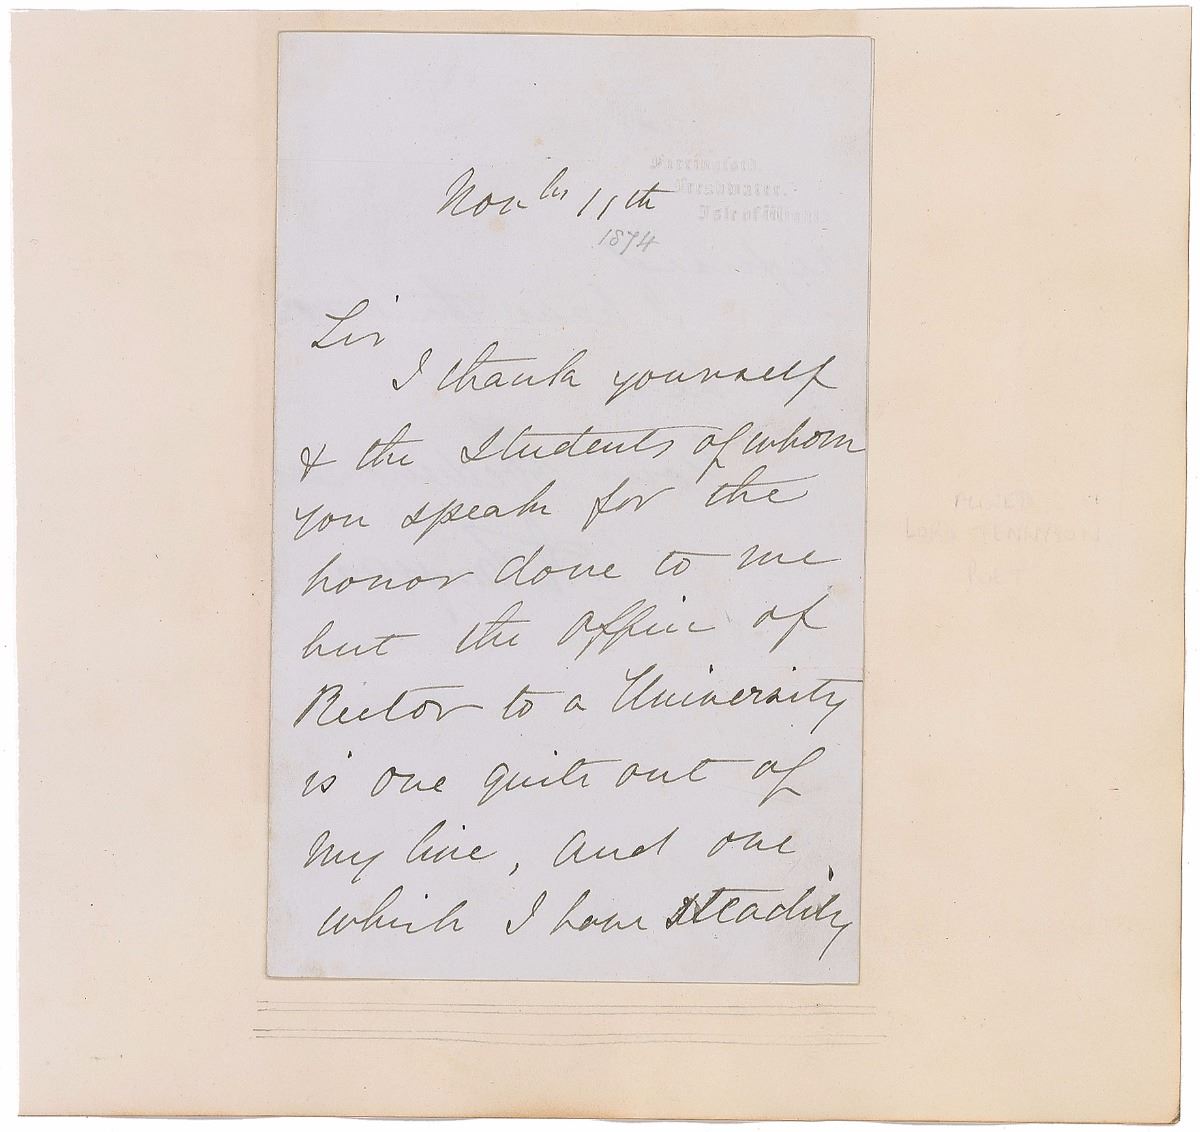 Farringford,
Freshwater,
Isle of Wight
Nov^br 11th
1874
Sir
I thank yourself
& the Students of whom
you speak for the
honor done to me
but the office of
Rector to a University
is one quite out of
my line, and one
which I have steadily